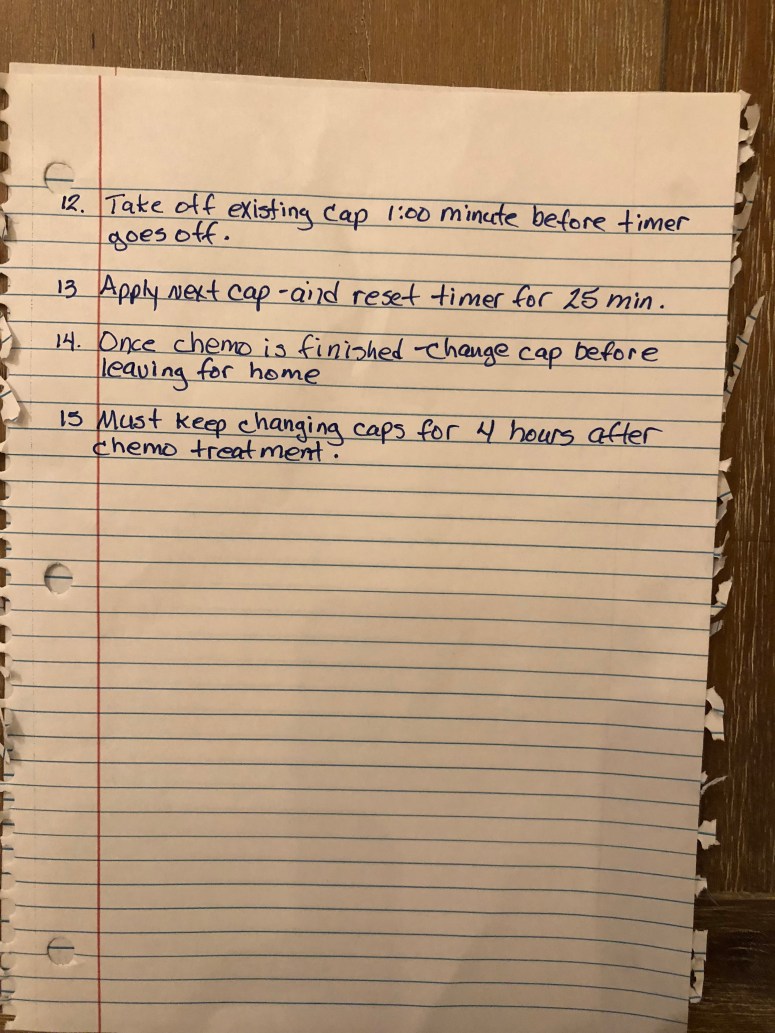 12. Take off existing cap 1:00 minute before timer
goes off.
13 Apply next cap - and reset timer for 25 min.
14. Once chemo is finished - change cap before
leaving for home
15 Must keep changing caps for 4 hours after
chemo treatment.